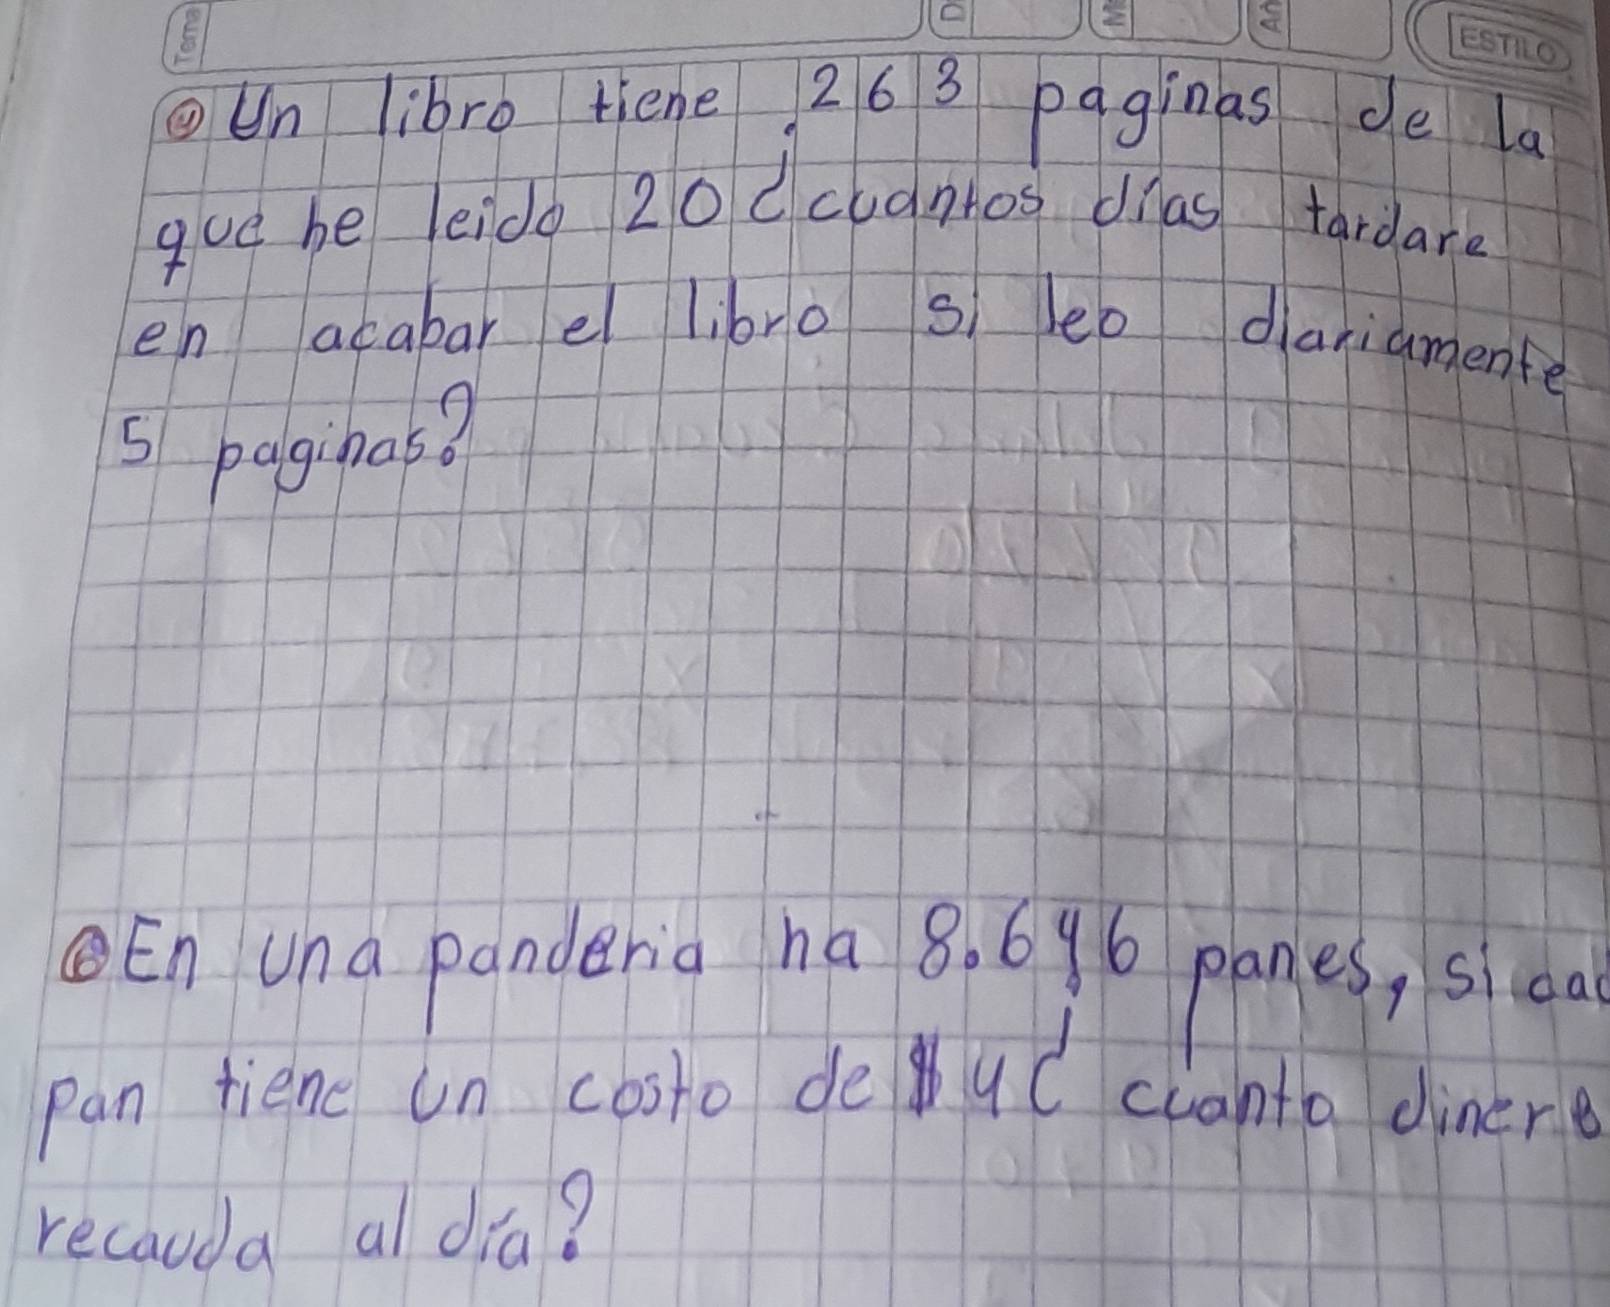 Tema
ESTILO
Un libro tiene 263 paginas de la
que he leido 20 ¿cuantos días tardare
en acabar el libro si leo diariamente
5 paginas?
En una panderia ha 8.646 panes, si cad
pan tiene un costo de $4 ¿ cuanto dinero
recauda al día?